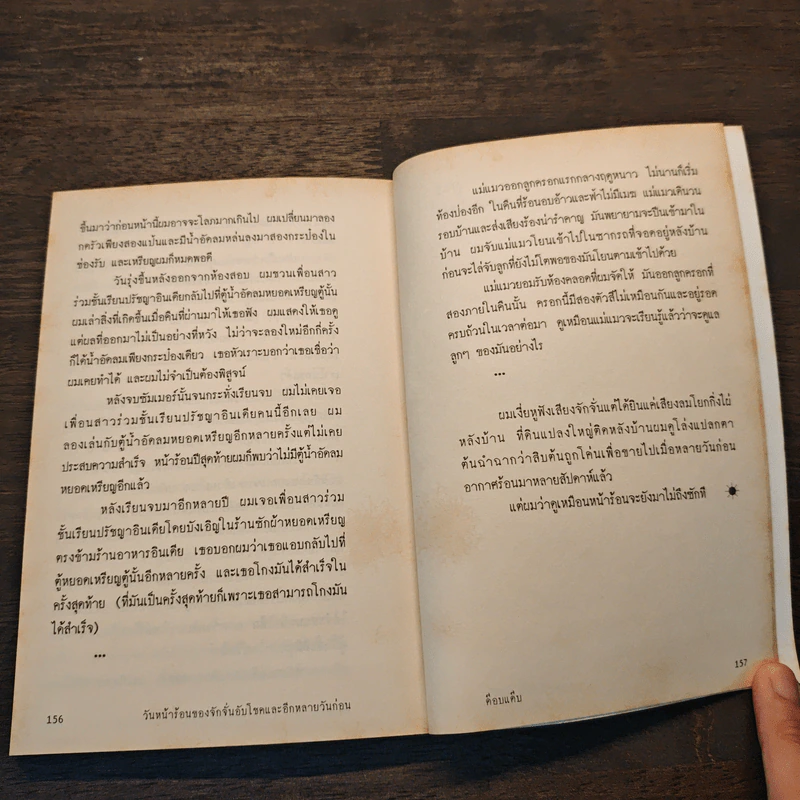 ขึ้นมาว่าก่อนหน้านี้ผมอาจจะโลภมากเกินไป ผมเปลี่ยนมาลอง
กครัวเพียงสองแป้นและมีน้ำอัดลมหล่นลงมาสองกระป๋องใน
ช่องรับ และเหรียญผมก็หมดพอดี
วันรุ่งขึ้นหลังออกจากห้องสอบ ผมชวนเพื่อนสาว
ร่วมชั้นเรียนปรัชญาอินเดียกลับไปที่ตู้น้ำอัดลมหยอดเหรียญตู้นั้น
ผมเล่าสิ่งที่เกิดขึ้นเมื่อคืนที่ผ่านมาให้เธอฟัง ผมแสดงให้เธอดู
แต่ผลที่ออกมาไม่เป็นอย่างที่หวัง ไม่ว่าจะลองใหม่อีกกี่ครั้ง
ก็ได้น้ำอัดลมเพียงกระป๋องเดียว เธอหัวเราะบอกว่าเธอเชื่อว่า
ผมเคยทำได้ และผมไม่จำเป็นต้องพิสูจน์
หลังจบซัมเมอร์นั้นจนกระทั่งเรียนจบ ผมไม่เคยเจอ
เพื่อนสาวร่วมชั้นเรียนปรัชญาอินเดียคนนี้อีกเลย ผม
ลองเล่นกับตู้น้ำอัดลมหยอดเหรียญอีกหลายครั้งแต่ไม่เคย
ประสบความสำเร็จ หน้าร้อนปีสุดท้ายผมก็พบว่าไม่มีตู้น้ำอัดลม
หยอดเหรียญอีกแล้ว
หลังเรียนจบมาอีกหลายปี ผมเจอเพื่อนสาวร่วม
ชั้นเรียนปรัชญาอินเดียโดยบังเอิญในร้านซักผ้าหยอดเหรียญ
ตรงข้ามร้านอาหารอินเดีย เธอบอกผมว่าเธอแอบกลับไปที่
ตู้หยอดเหรียญตู้นั้นอีกหลายครั้ง และเธอโกงมันได้สำเร็จใน
ครั้งสุดท้าย (ที่มันเป็นครั้งสุดท้ายก็เพราะเธอสามารถโกงมัน
ได้สำเร็จ)
...
156 วันหน้าร้อนของจักจั่นอับโชคและอีกหลายวันก่อน
แม่แมวออกลูกครอกแรกกลางฤดูหนาว ไม่นานก็เริ่ม
ท้องป่องอีก ในคืนที่ร้อนอบอ้าวและฟ้าไม่มีเมฆ แม่แมวเดินวน
รอบบ้านและส่งเสียงร้องน่ารำคาญ มันพยายามจะปีนเข้ามาใน
บ้าน ผมจับแม่แมวโยนเข้าไปในซากรถที่จอดอยู่หลังบ้าน
ก่อนจะไล่จับลูกที่ยังไม่โตพอของมันโยนตามเข้าไปด้วย
แม่แมวยอมรับห้องคลอดที่ผมจัดให้ มันออกลูกครอกที่
สองภายในคืนนั้น ครอกนี้มีสองตัวสีไม่เหมือนกันและอยู่รอด
ครบถ้วนในเวลาต่อมา ดูเหมือนแม่แมวจะเรียนรู้แล้วว่าจะดูแล
ลูกๆ ของมันอย่างไร
...
ผมเงี่ยหูฟังเสียงจักจั่นแต่ได้ยินแค่เสียงลมโยกกิ่งไผ่
หลังบ้าน ที่ดินแปลงใหญ่ติดหลังบ้านผมดูโล่งแปลกตา
ต้นฉำฉากว่าสิบต้นถูกโค่นเพื่อขายไปเมื่อหลายวันก่อน
อากาศร้อนมาหลายสัปดาห์แล้ว
แต่ผมว่าดูเหมือนหน้าร้อนจะยังมาไม่ถึงซักที
157
ค็อบแค็บ